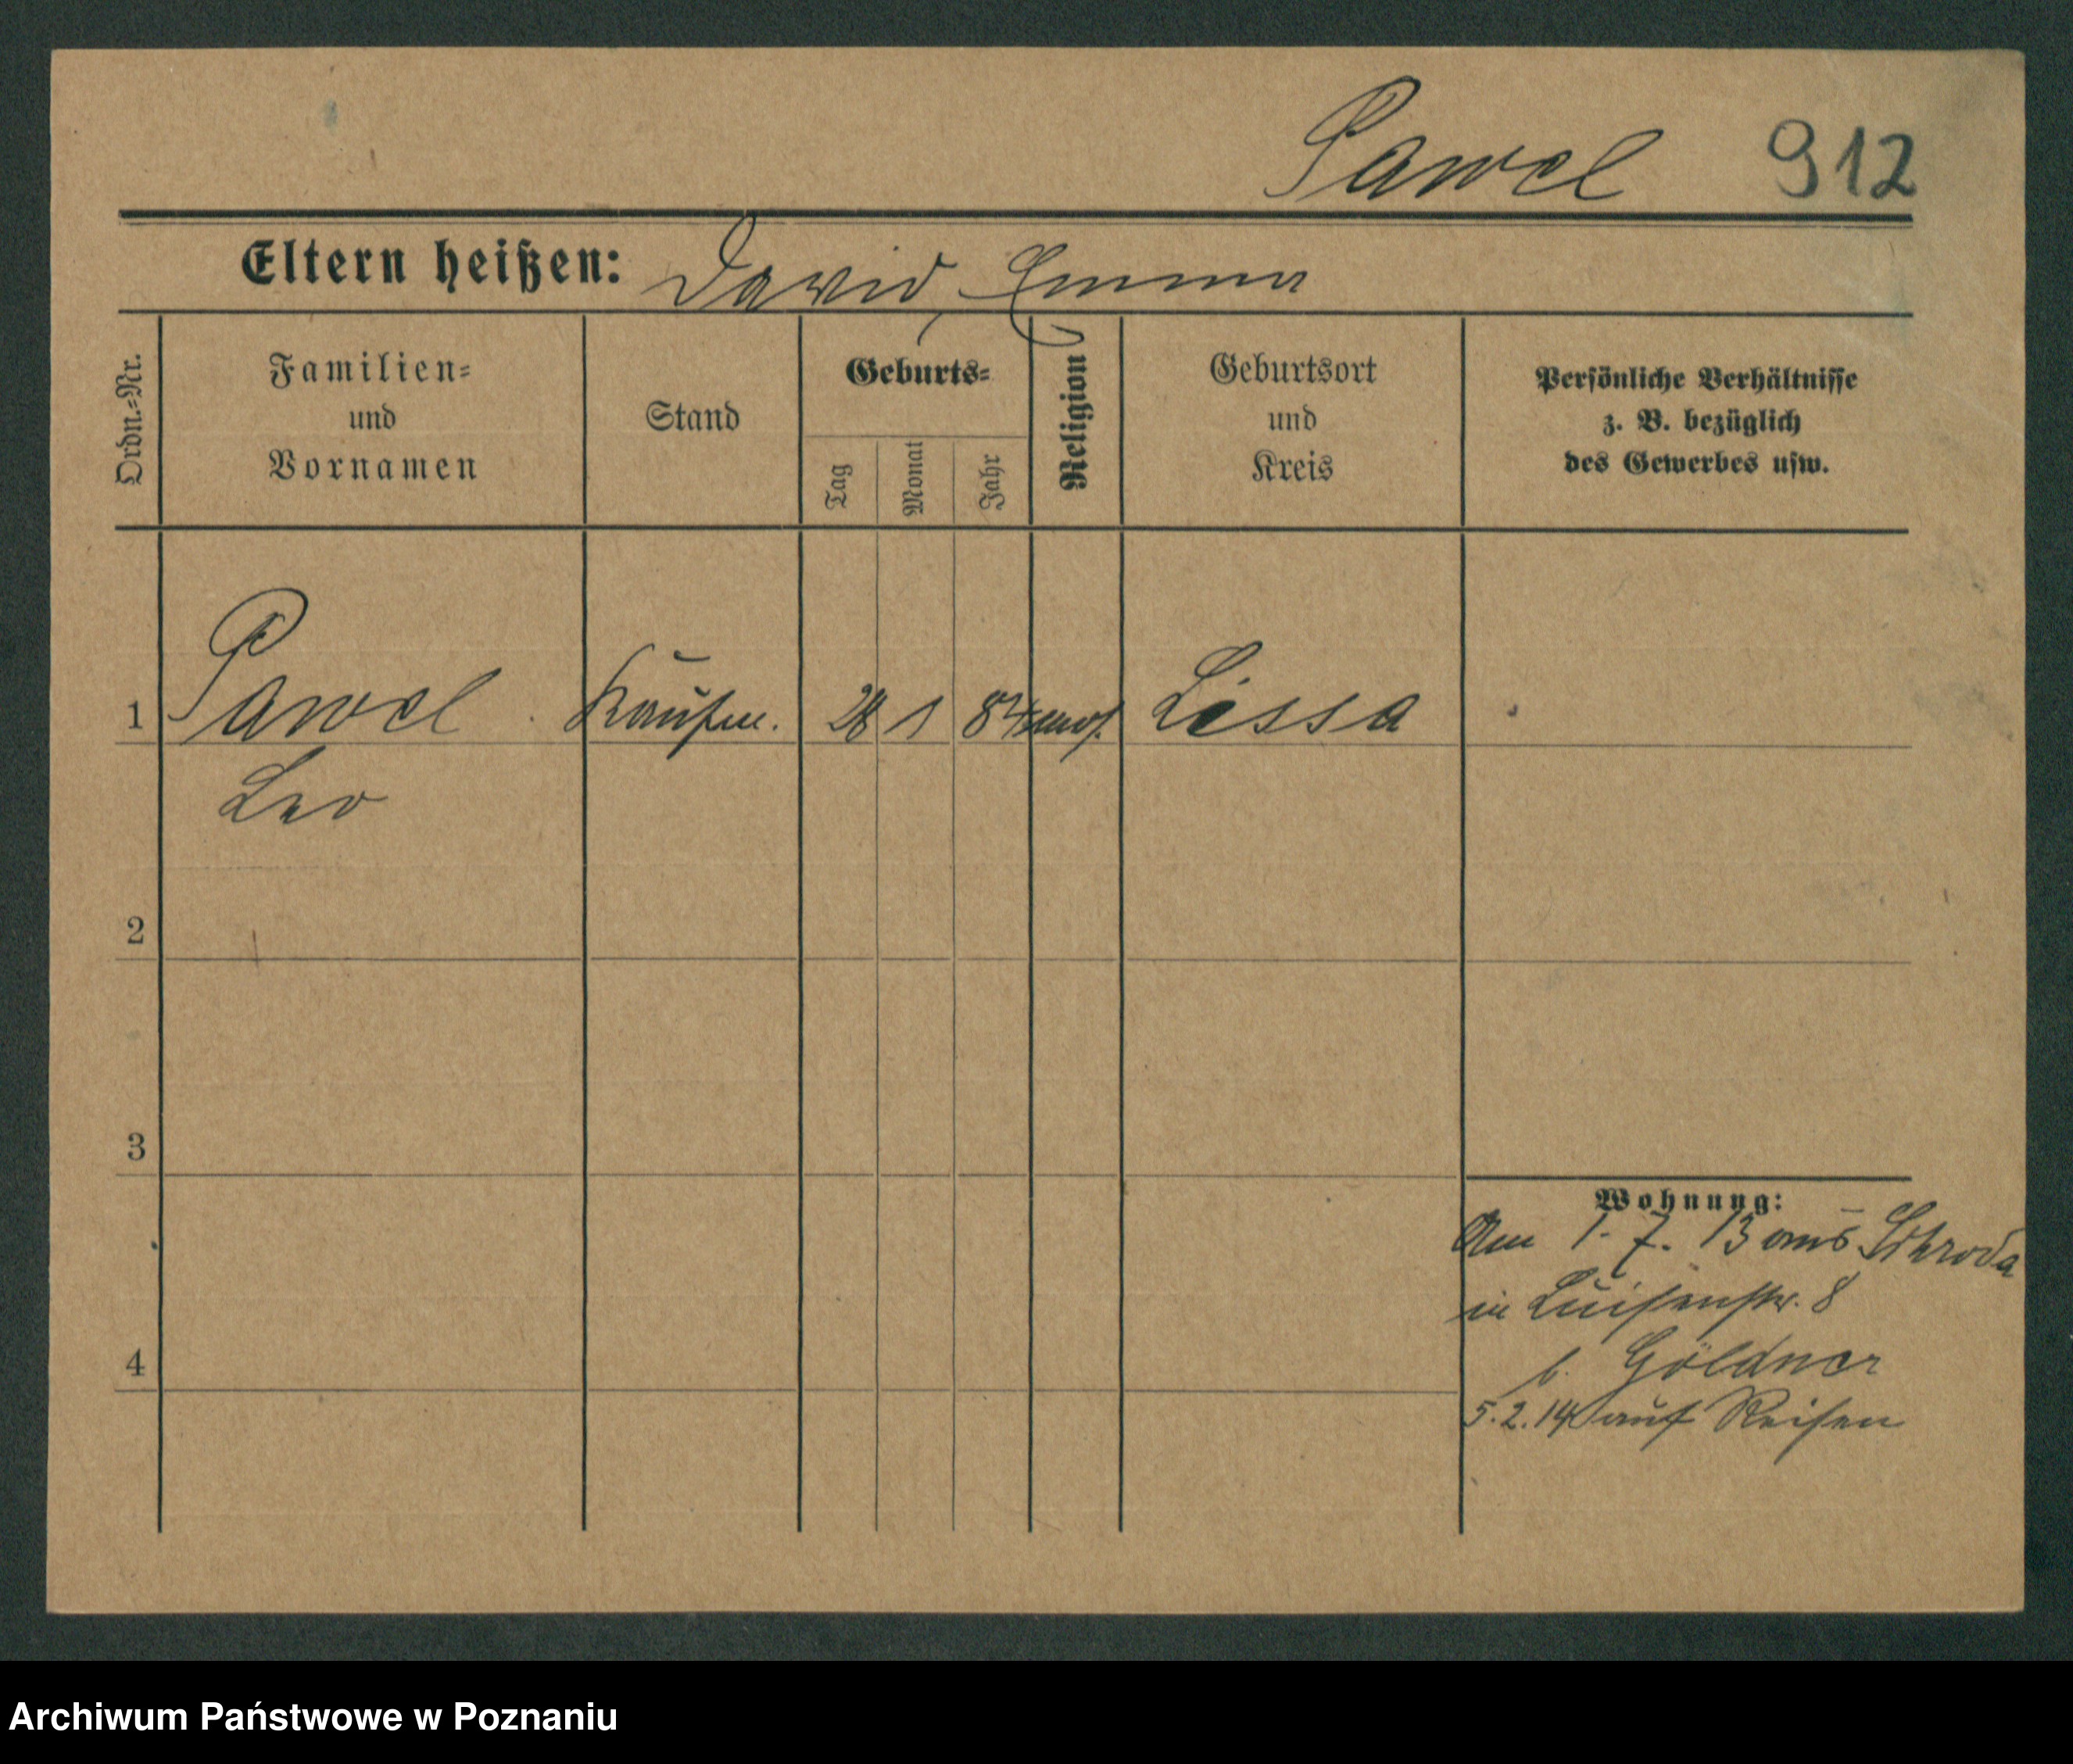 Pawel 912
Eltern heißen: David, Emma
Ordn.-Nr.
Familien-
und
Vornamen
Stand
Geburts-
Tag
Monat
Jahr
Religion
Geburtsort
und
Kreis
Persönliche Verhältnisse
z. B. bezüglich
des Gewerbes usw.
1 Pawel Kaufm. 28 1 84 mos. Lissa
Leo
2
3
4
Wohnung:
Am 1. 7. 13 aus Schroda
in Luisenstr. 8
b. Göldner
5. 2. 14 auf Reisen
Archiwum Państwowe w Poznaniu